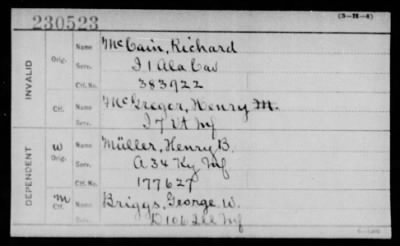 230523
(3-28-4)
INVALID
Orig. Name McCain, Richard
Serv. I 1 Ala Cav
Ctf. No. 383922
Ctf. Name McGregor, Henry M.
Serv. I 7 Vt Inf
DEPENDENT
W Orig. Name Müller, Henry B.
Serv. A 34 Ky Inf
Ctf. No. 177627
M Ctf. Name Briggs, George W.
Serv. D 106 Ill Inf